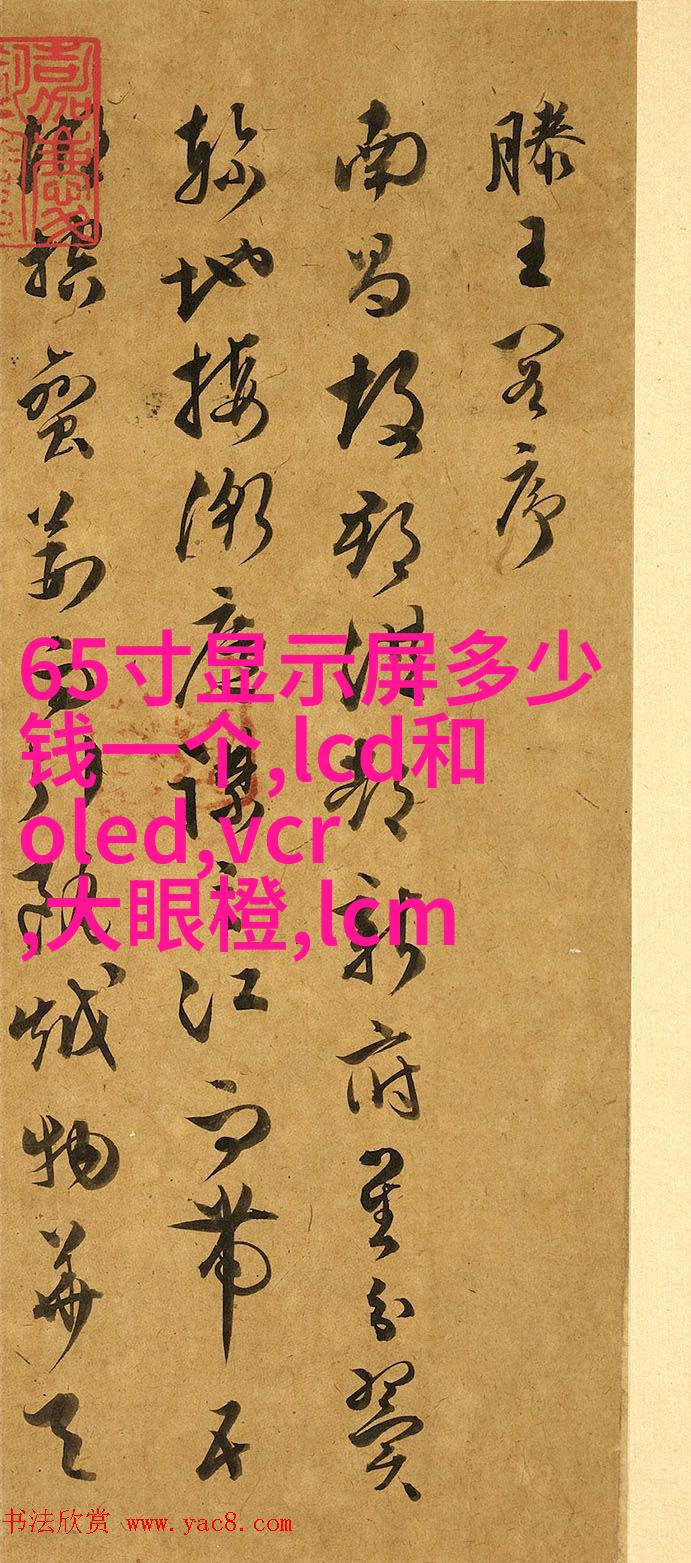 滕王閣序
南昌故郡洪都新府星分翼
軫地接衡廬襟三江而帶五
湖控蠻荊而引甌越物華天
65寸显示屏多少
钱一个,lcd和
oled,vcr
,大眼橙,lcm
书法欣赏 www.yac8.com